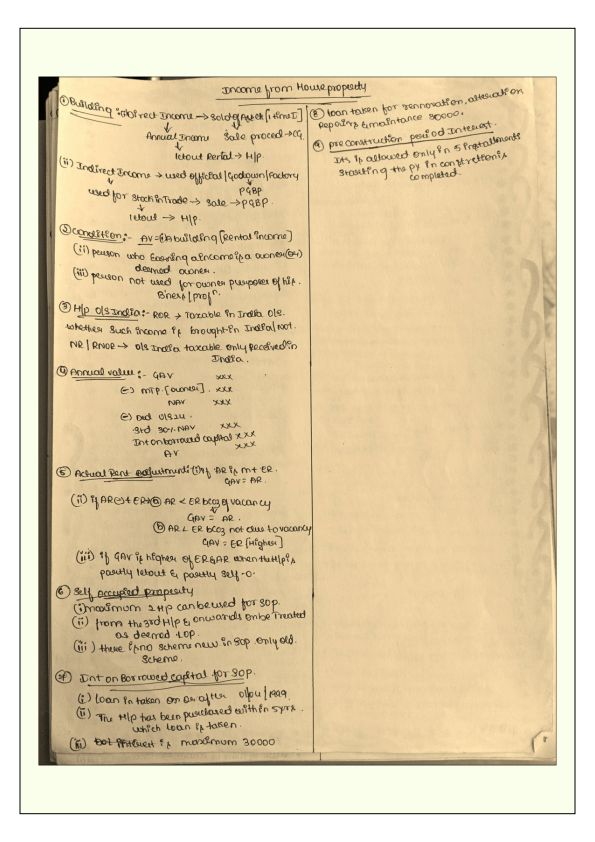 Income from House property
① Building :- (i) Direct Income → Sold of Asset [1 time I]
↓ ↓
Annual Income Sale proced → CG.
↓
letout Rental → H/P
(ii) Indirect Income → used official/Godown/Factory
↓ PGBP
used for Stock in Trade → Sale → PGBP.
↓
letout → H/P.
② Condition :- AV = building [Rental income]
(ii) person who Earning a income is a owner (or)
deemed owner.
(iii) person not used for owner purposes of his
③ H/p O/S India :- ROR → Taxable in India O/S.
whether such income is brought in India/not.
NR / RNOR → O/S India taxable only Received in
India.
④ Annual value :- GAV xxx
(-) MTP. [owner] . xxx
NAV xxx
(-) Ded U/S 24.
Std 30% NAV xxx
Int on borrowed capital xxx
AV xxx
⑤ Actual Rent adjustment: (i) if AR is more ER.
GAV = AR.
(ii) if AR ⓐ AR < ER bcoz of vacancy
GAV = AR.
ⓑ AR < ER bcoz not due to vacancy
GAV = ER [Higher]
(iii) if GAV is higher of ER & AR when the H/p is
partly letout & partly Self-O.
⑥ Self occupied property
(i) maximum 2 H/p can be used for SOP.
(ii) from the 3rd H/p & onwards be Treated
as deemed LOP.
(iii) there is no scheme new in SOP only old.
Scheme.
⑦ Int on Borrowed capital for SOP.
(i) loan is taken on or after 01/04/1999
(ii) The H/p has been purchased within 5 yrs.
which loan is taken.
(iii) is maximum 30000
⑧ loan taken for rennovation, alteration
Repairs & maintance 30000.
⑨ preconstruction period Interest.
Its is allowed only in 5 installments
Starting the py in construction is
completed.